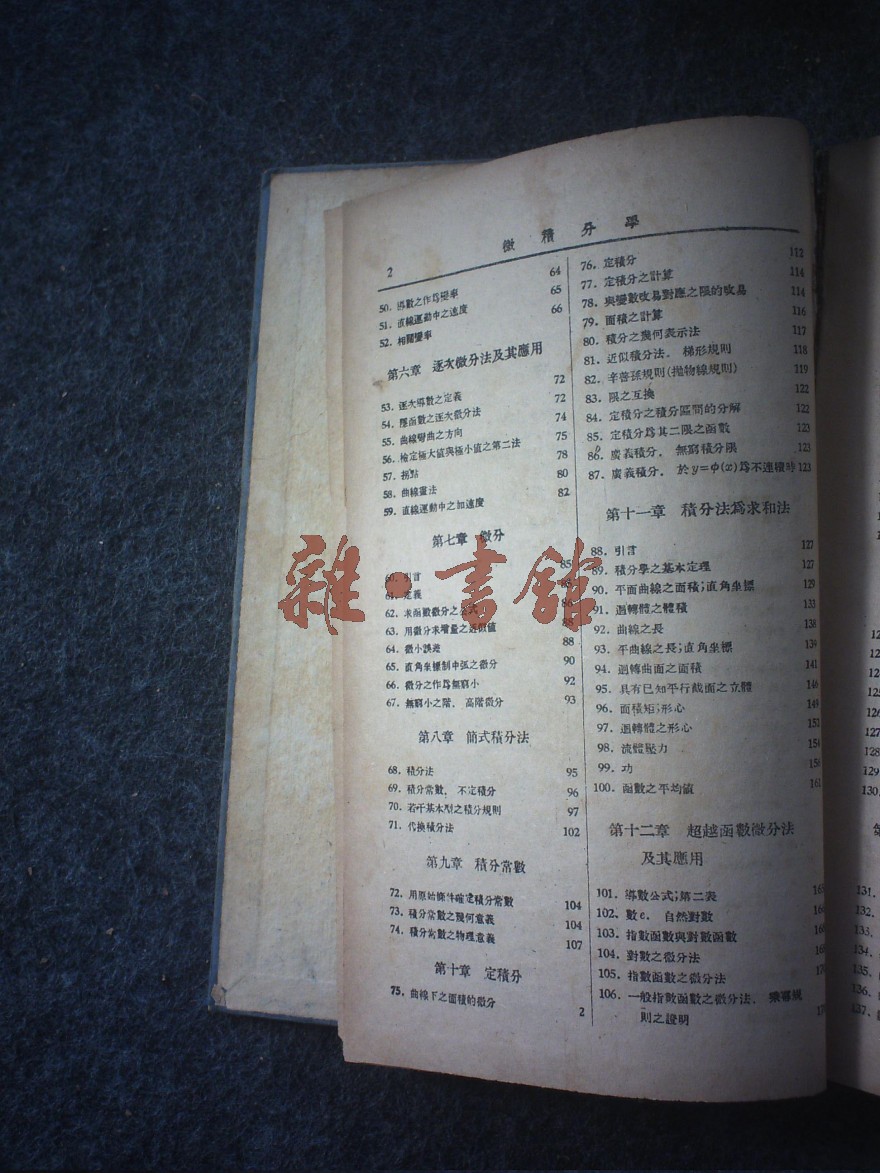 2
微積分學
50. 導數之作爲變率 64
51. 直線運動中之速度 65
52. 相關變率 66
第六章 逐次微分法及其應用
53. 逐次導數之定義 72
54. 隱函數之逐次微分法 72
55. 曲線彎曲之方向 74
56. 檢定極大值與極小值之第二法 75
57. 拐點 78
58. 曲線畫法 80
59. 直線運動中之加速度 82
第七章 微分
60. 引言 85
61. 定義
62. 求函數微分之公式 86
63. 用微分求增量之近似值 88
64. 微小誤差 88
65. 直角坐標制中弧之微分 90
66. 微分之作爲無窮小 92
67. 無窮小之階、高階微分 93
第八章 簡式積分法
68. 積分法 95
69. 積分常數，不定積分 96
70. 若干基本型之積分規則 97
71. 代換積分法 102
第九章 積分常數
72. 用原始條件確定積分常數 104
73. 積分常數之幾何意義 104
74. 積分常數之物理意義 107
第十章 定積分
75. 曲線下之面積的微分
2
76. 定積分 112
77. 定積分之計算 114
78. 與變數改易對應之限的改易 114
79. 面積之計算 116
80. 積分之幾何表示法 117
81. 近似積分法，梯形規則 118
82. 辛普孫規則(拋物線規則) 119
83. 限之互換 122
84. 定積分之積分區間的分解 122
85. 定積分爲其二限之函數 123
86. 廣義積分，無窮積分限 123
87. 廣義積分，於 y=φ(x) 爲不連續時 123
第十一章 積分法爲求和法
88. 引言 127
89. 積分學之基本定理 127
90. 平面曲線之面積;直角坐標 129
91. 迴轉體之體積 133
92. 曲線之長 138
93. 平曲線之長;直角坐標 139
94. 迴轉曲面之面積 141
95. 具有已知平行截面之立體 146
96. 面積矩;形心 149
97. 迴轉體之形心 152
98. 流體壓力 154
99. 功 156
100. 函數之平均值 161
第十二章 超越函數微分法
及其應用
101. 導數公式;第二表
102. 數e，自然對數
103. 指數函數與對數函數
104. 對數之微分法
105. 指數函數之微分法
106. 一般指數函數之微分法，乘冪規
則之證明
雜·書館
127
128
129
130.
131.
132.
133.
134.
135.
136.
137.